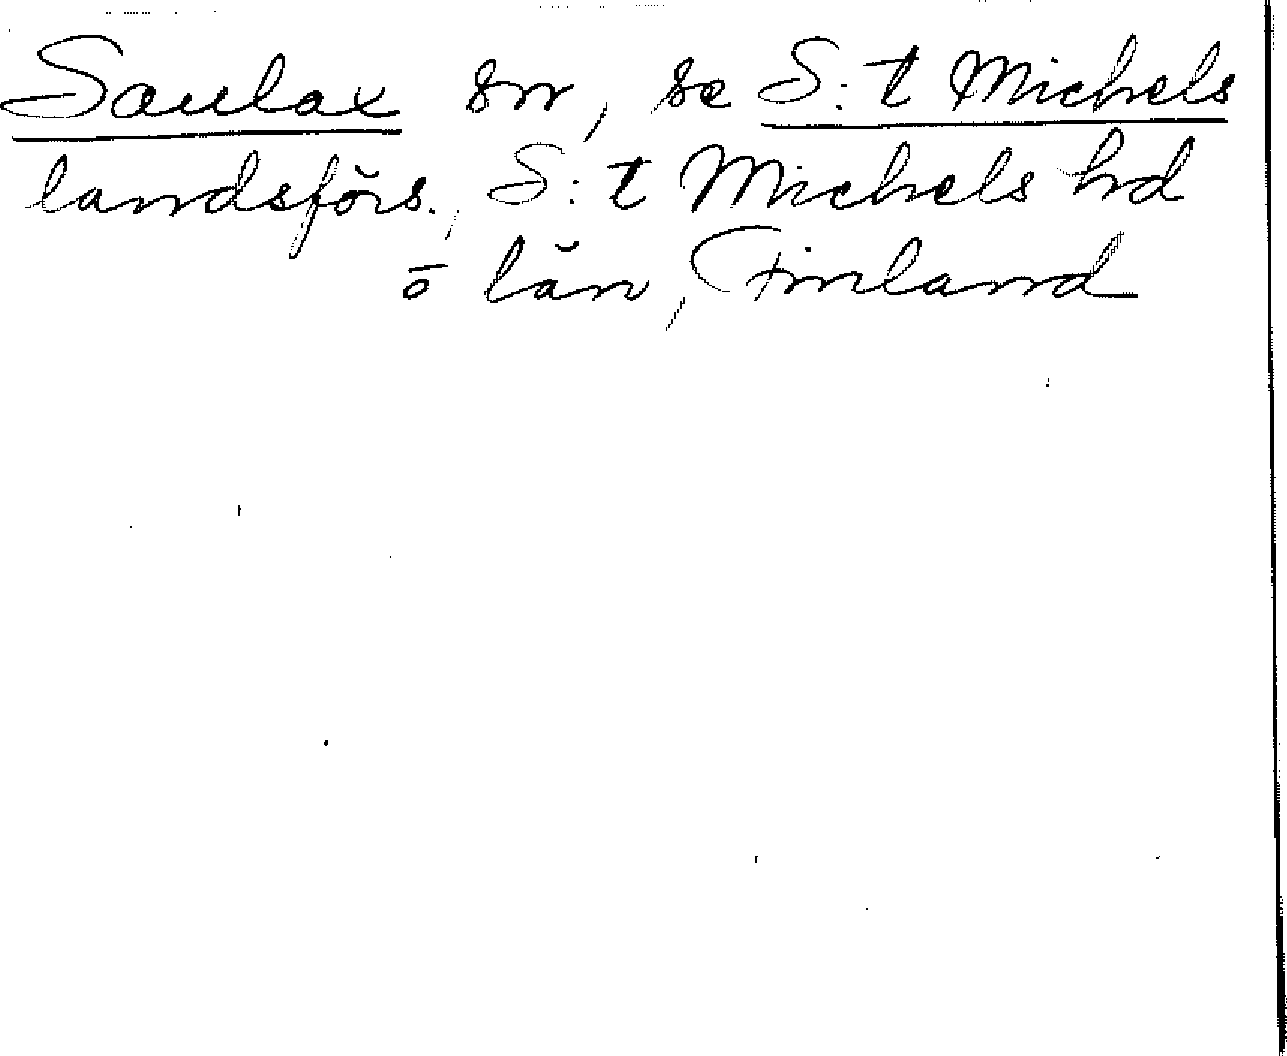 Saulax sn, se S:t Michels
landsförs., S:t Michels hd
o län, Finland